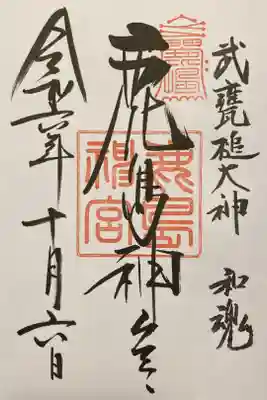 武甕槌大神 和魂
鹿島神宮
鹿島
神宮
令和六年十月六日